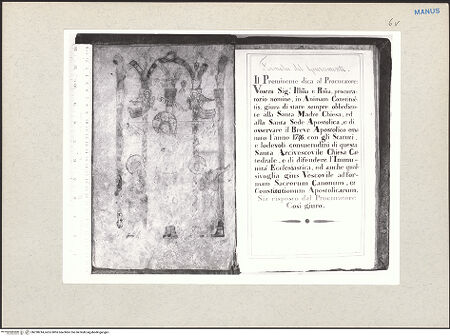 MANUS
6v
Formola del Giuramento
Il Preminente dica al Procuratore:
Vostra Sig.ª Illm̃a e Rm̃a, procura-
torio nomine, in Animam Constituen-
tis, giura di stare sempre obbedien-
te alla Santa Madre Chiesa, ed
alla Santa Sede Apostolica, e di
osservare il Breve Apostolico ema-
nato l'anno 1746. con gli Statuti,
e lodevoli consuetudini di questa
Santa Arcivescovile Chiesa Ca-
tedrale, e di difendere l'Immu-
nità Ecclesiastica, ed anche qual-
sivoglia gius Vescovile ad for-
mam Sacrorum Canonum, et
Constitutionum Apostolicarum.
Sia risposto dal Procuratore:
Così giuro.